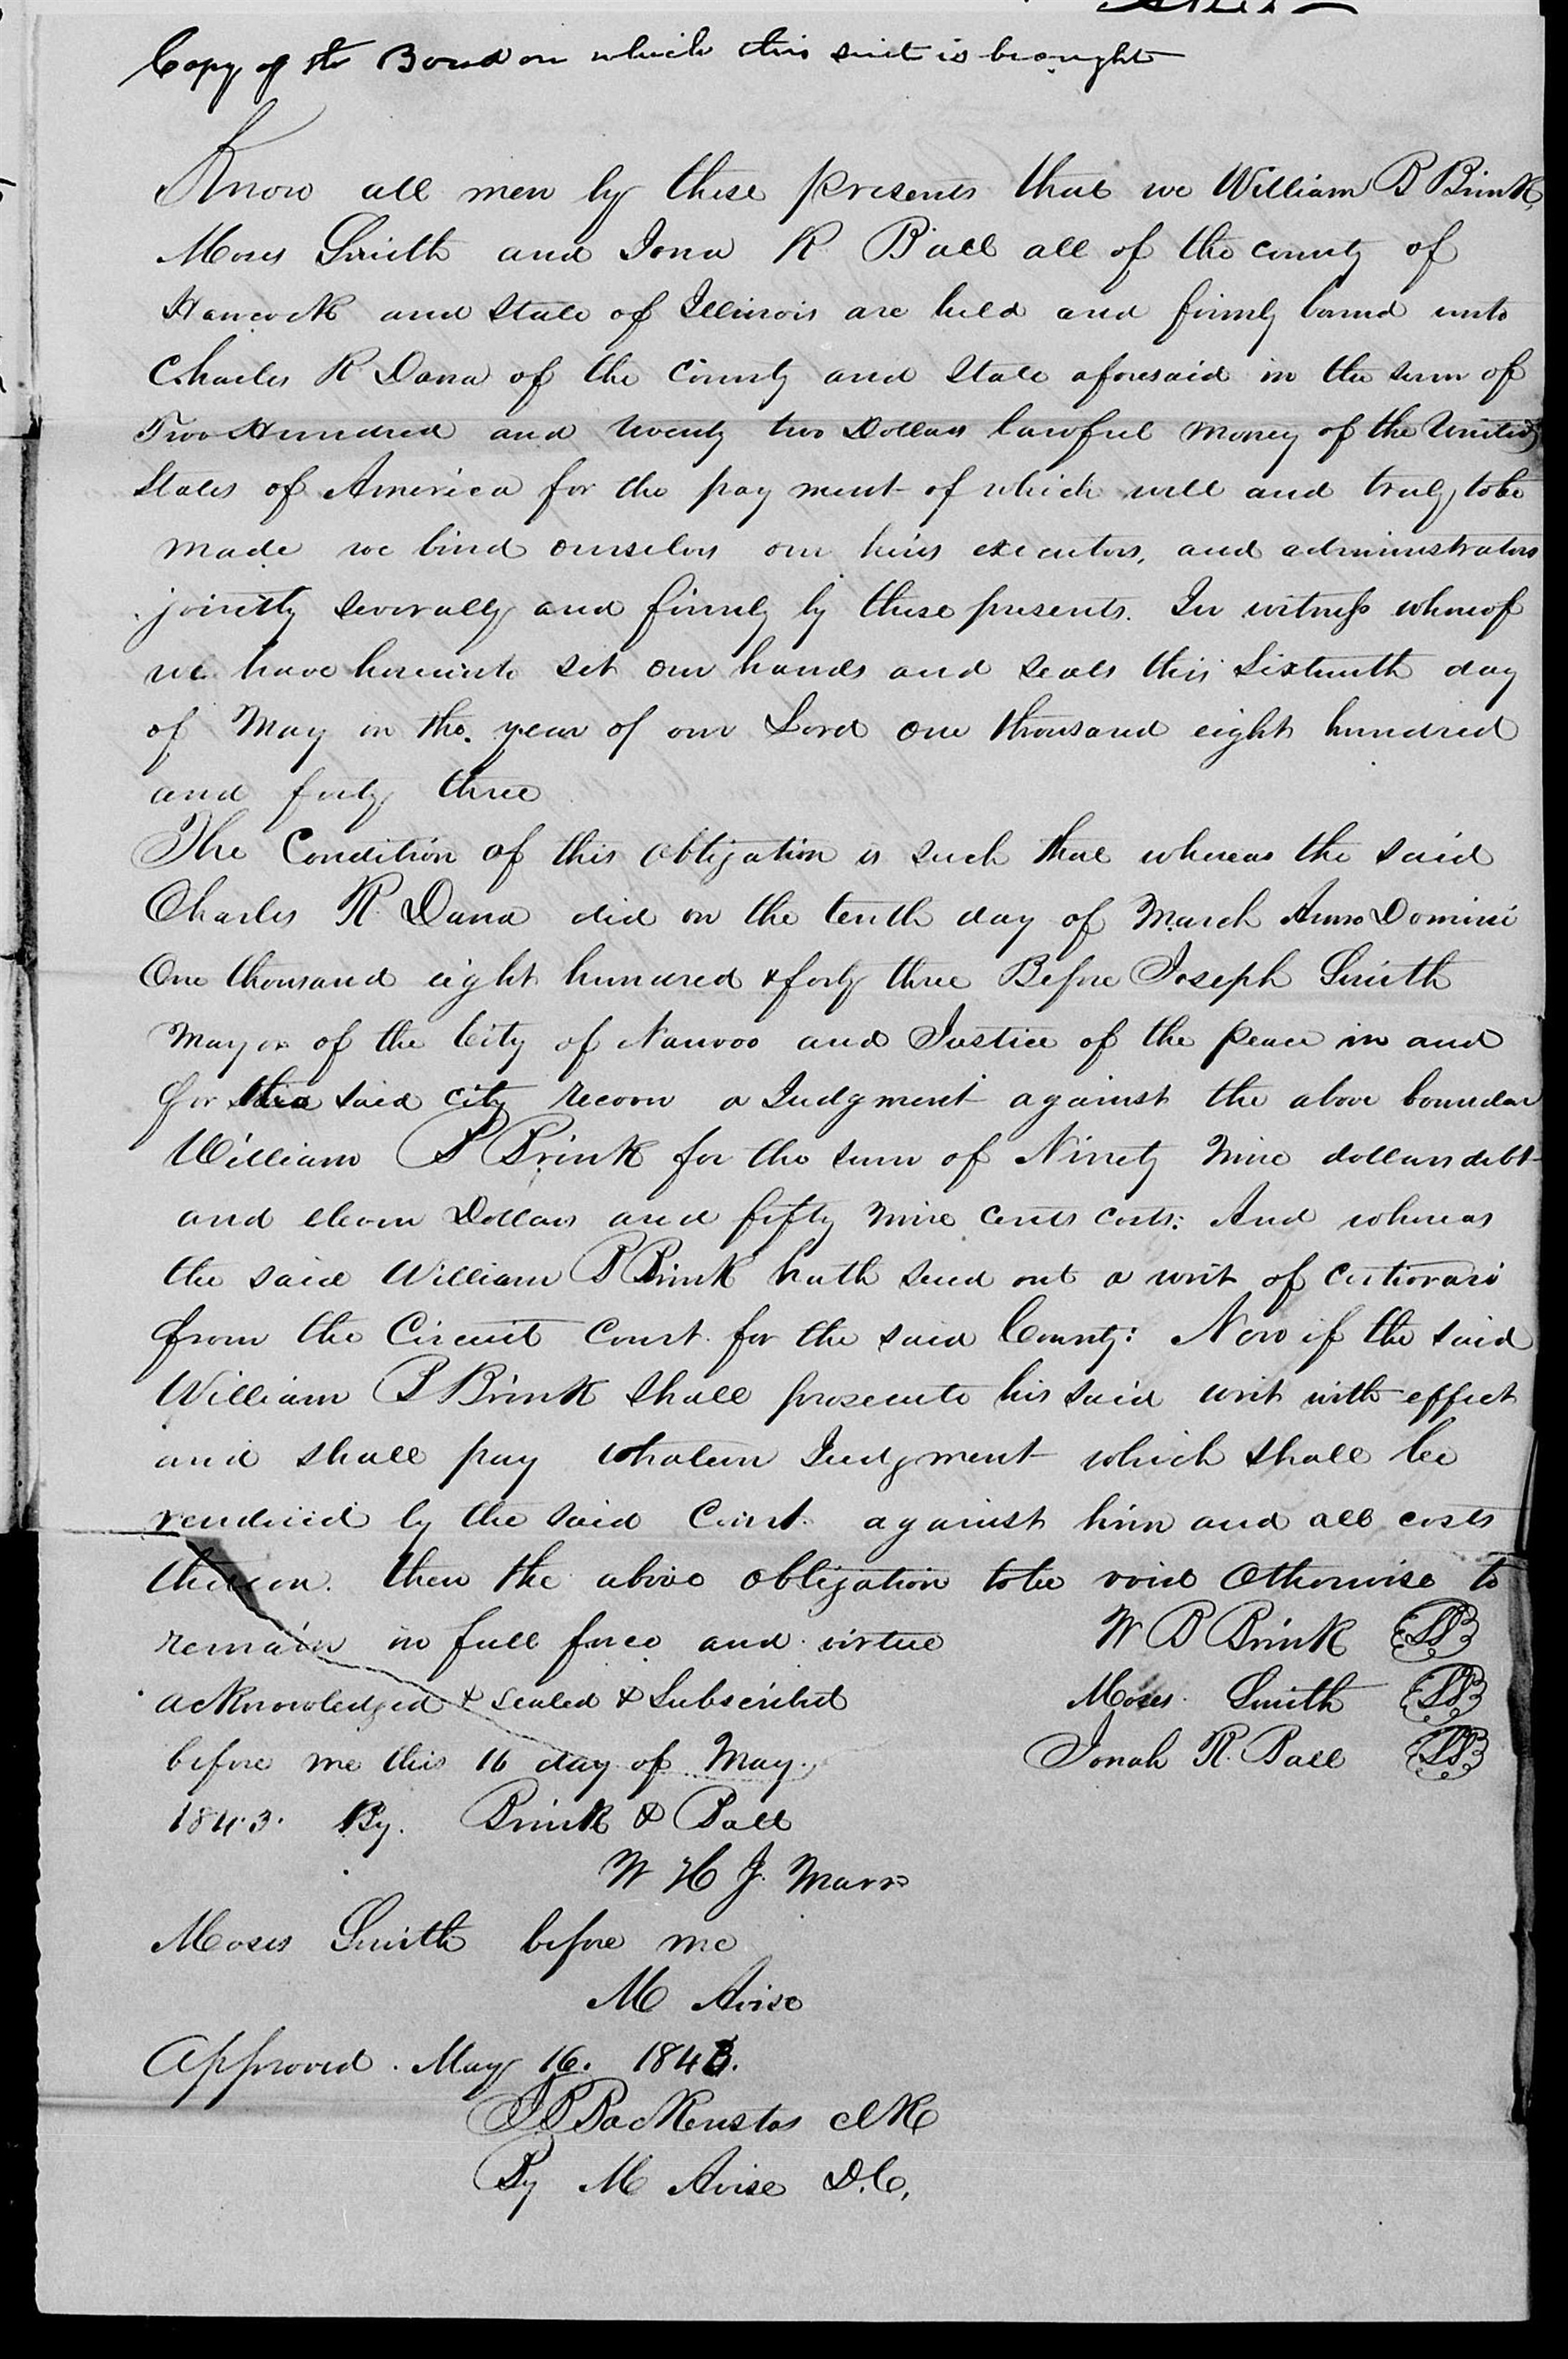 Copy of the Bond on which this suit is brought
Know all men by these presents that we William B Brink,
Moses Smith and Jona R Ball all of the county of
Hancock and State of Illinois are held and firmly bound unto
Charles R Dana of the County and State aforesaid in the sum of
Two Hundred and twenty two Dollars lawful money of the United
States of America for the pay ment of which well and truly to be
made we bind ourselves our heirs executors, and administrators
jointly severally and firmly by these presents. In witness whereof
we have hereunto set our hands and seals this Sixteenth day
of May in the year of our Lord one thousand eight hundred
and forty three
The Condition of this obligation is such that whereas the said
Charles R. Dana did on the tenth day of March Anno Domini
One thousand eight hundred & forty three Before Joseph Smith
Mayor of the City of Nauvoo and Justice of the peace in and
for the said city recover a Judgment against the above bounden
William B Brink for the sum of Ninety Nine dollars debt
and eleven Dollars and fifty nine cents costs: And whereas
the said William B Brink hath sued out a writ of certiorari
from the Circuit Court for the said County: Now if the said
William B Brink shall prosecute his said writ with effect
and shall pay whatever Judgment which shall be
rendered by the said Court against him and all costs
thereon. then the above obligation to be void Otherwise to
remain in full force and virtue W B Brink
acknowledged & sealed & Subscribed Moses Smith
before me this 16 day of May Jonah R. Ball
1843. By. Brink & Ball
W H J Marr
Moses Smith before me
M Avise
Approved. May 16. 1843.
J B Backenstos clk
By M Avise D.C.